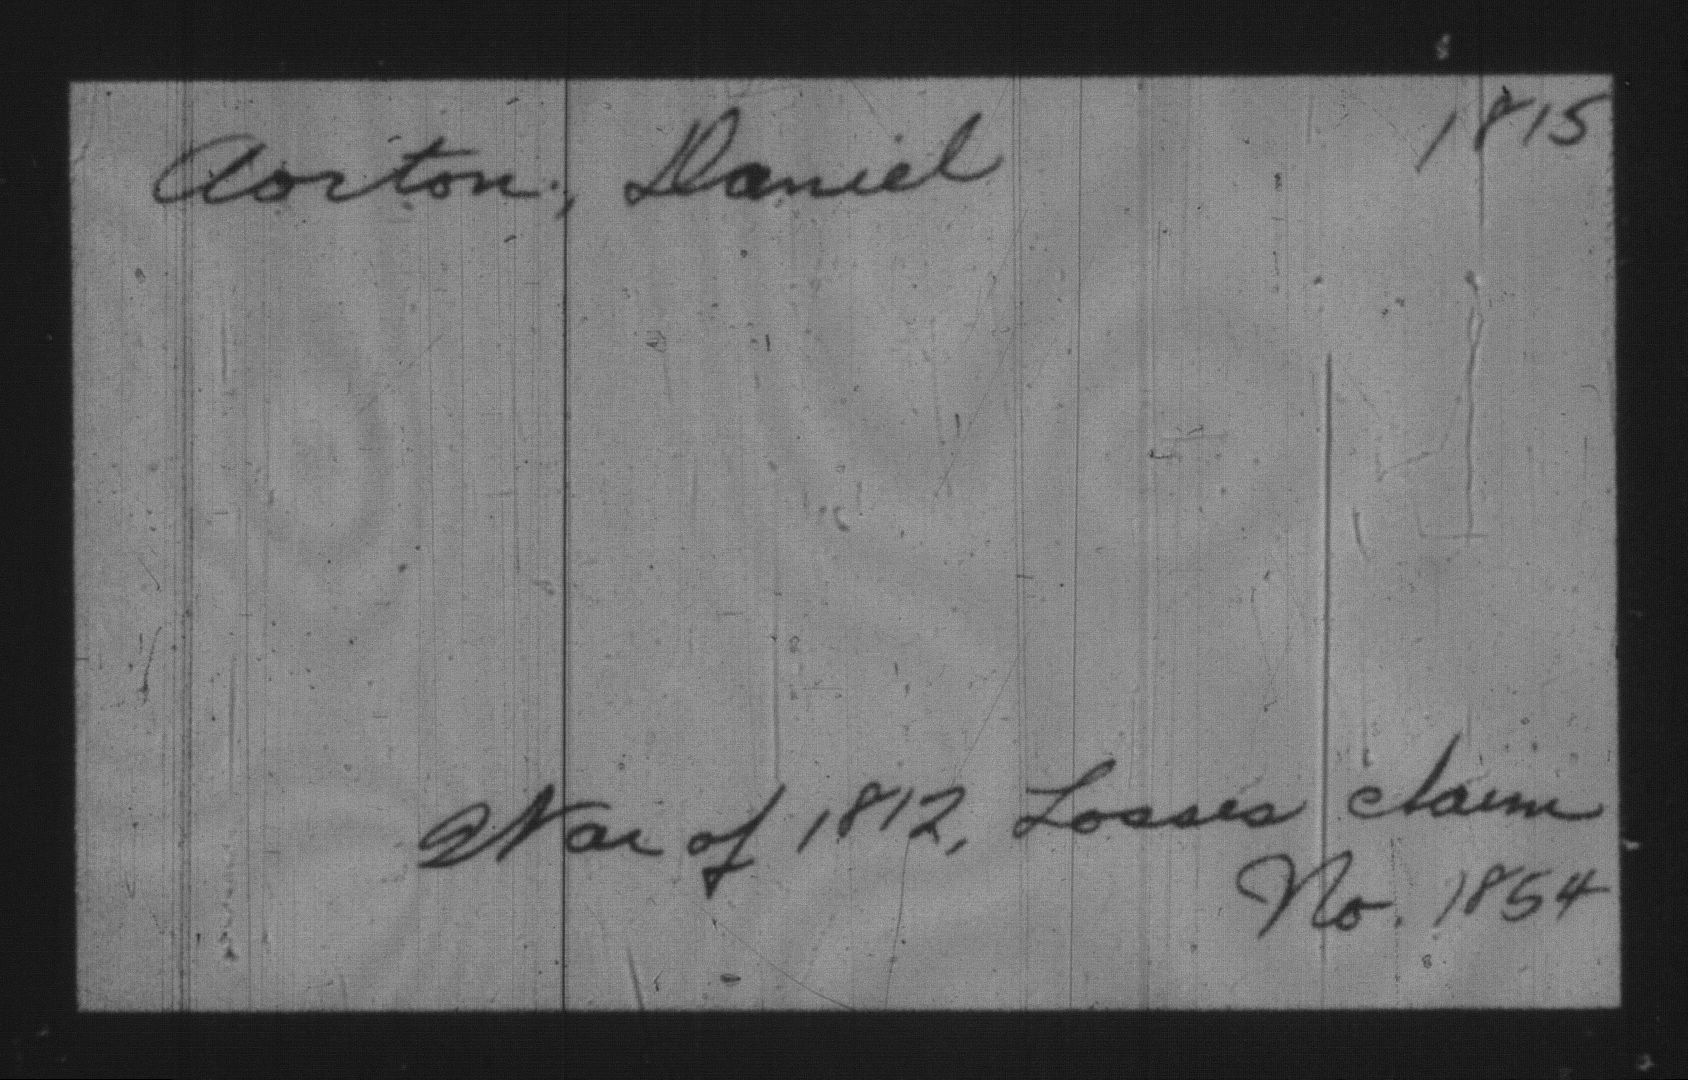 Aorton, Daniel 1815
War of 1812, Losses claim
No. 1854